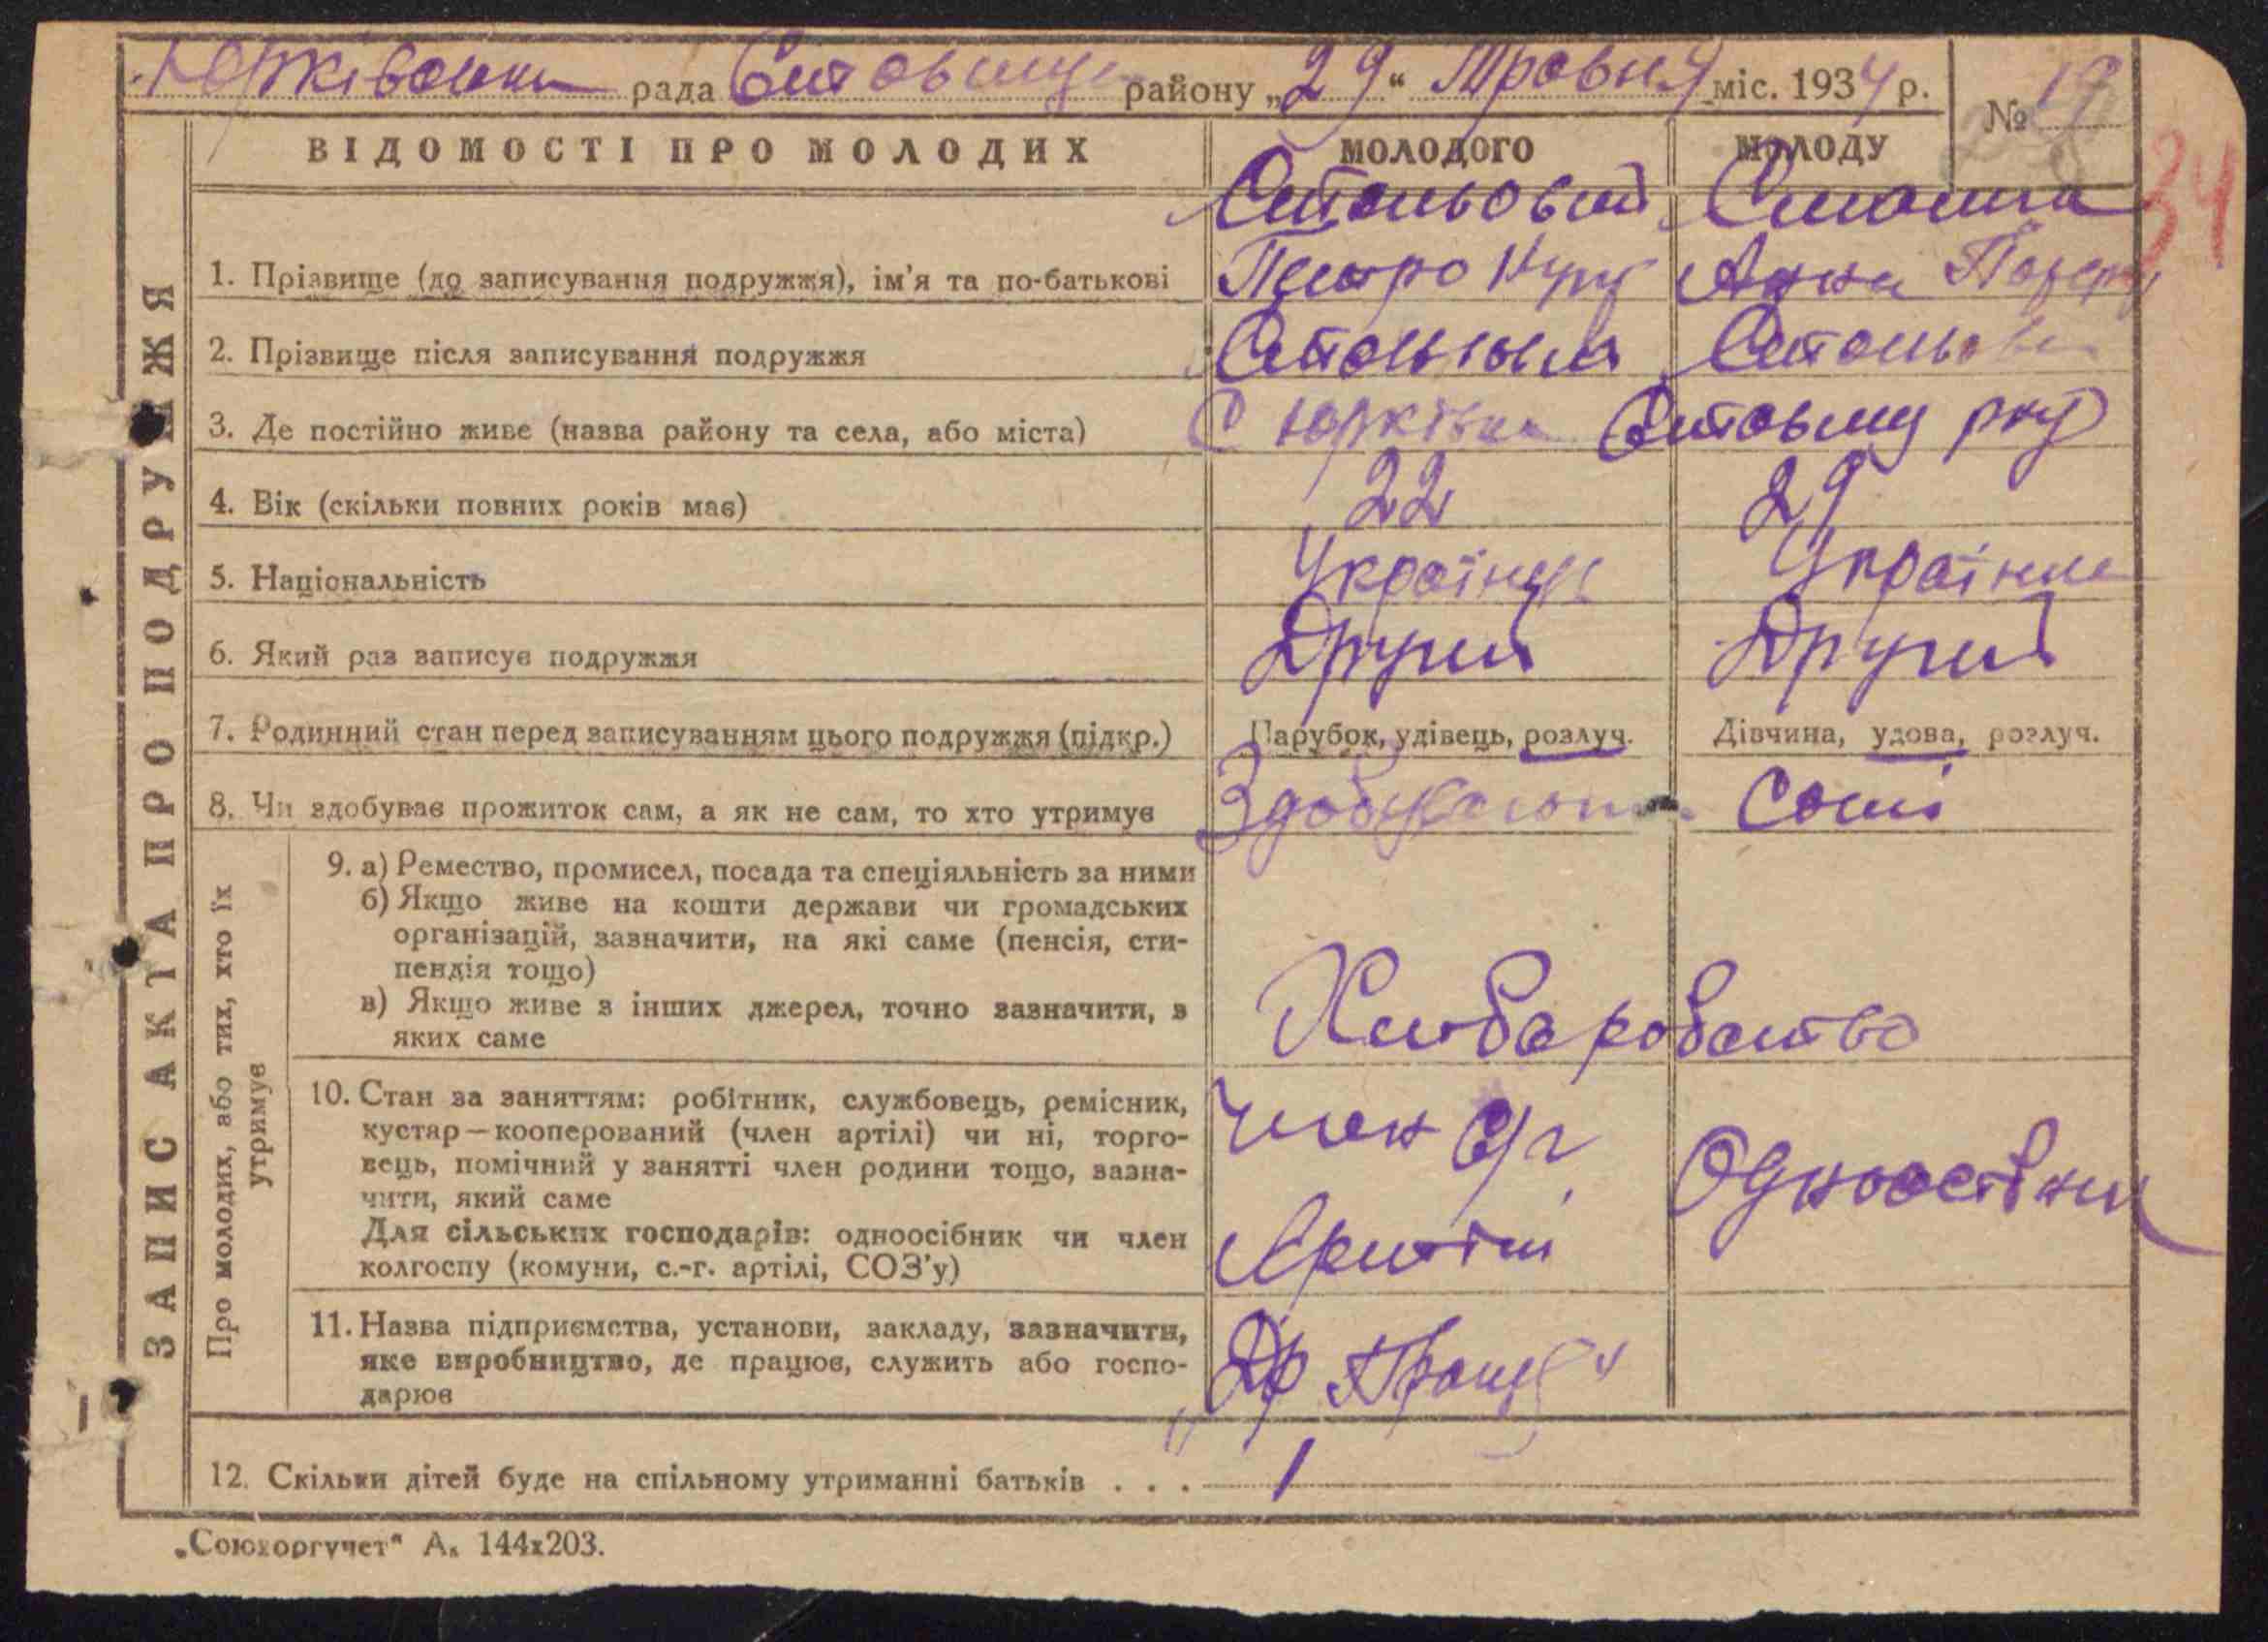 Юрківська рада Ситовец району „29“ Травня міс. 1934 р.
№ 19
34
ЗАПИС АКТА ПРО ПОДРУЖЖЯ
ВІДОМОСТІ ПРО МОЛОДИХ МОЛОДОГО МОЛОДУ
1. Прізвище (до записування подружжя), ім’я та по-батькові Петро Анна
2. Прізвище після записування подружжя
3. Де постійно живе (назва району та села, або міста) С Юрківка
4. Вік (скільки повних років має) 22 29
5. Національність Українец Українка
6. Який раз записує подружжя Другий Другий
7. Родинний стан перед записуванням цього подружжя (підкр.) Парубок, удівець, розлуч. Дівчина, удова, розлуч.
8. Чи здобуває прожиток сам, а як не сам, то хто утримує Здобувають Самі
Про молодих, або тих, хто їх утримує
9. а) Ремество, промисел, посада та спеціяльність за ними
б) Якщо живе на кошти держави чи громадських
організацій, зазначити, на які саме (пенсія, сти-
пендія тощо)
в) Якщо живе з інших джерел, точно зазначити, з
яких саме
Хліборобство
10. Стан за заняттям: робітник, службовець, ремісник,
кустар—кооперований (член артілі) чи ні, торго-
вець, помічний у занятті член родини тощо, зазна-
чити, який саме
Для сільських господарів: одноосібник чи член
колгоспу (комуни, с.-г. артілі, СОЗ’у)
член с/г
Артілі
Одноосібник
11. Назва підприємства, установи, закладу, зазначити,
яке виробництво, де працює, служить або госпо-
дарює
12. Скільки дітей буде на спільному утриманні батьків . . . 1
„Союзоргучет“ А₆ 144x203.